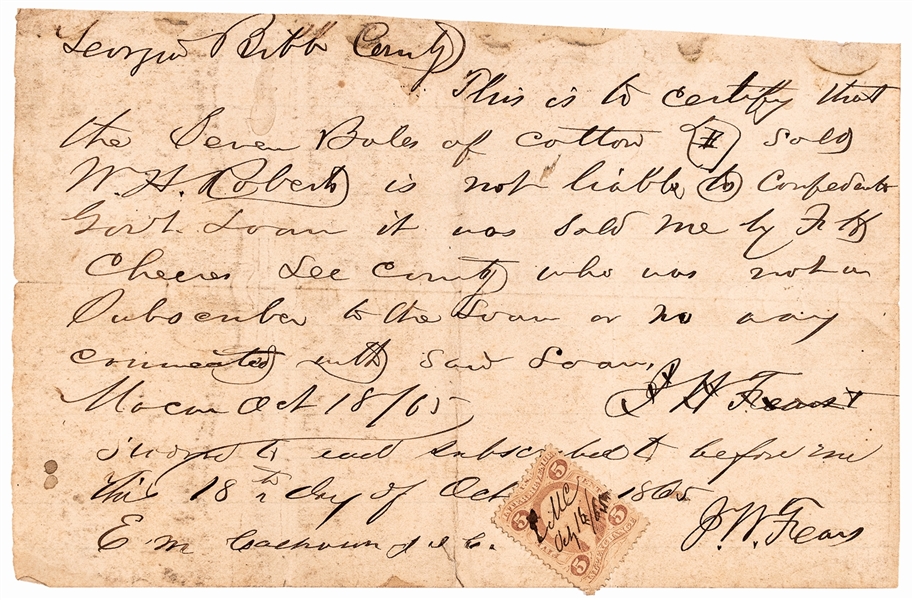 Georgia Bibb County
This is to certify that
the Seven Bales of cotton I sold
W. H. Roberts is not liable to Confederate
Govt. Loan it was sold me by
Cheves Lee County who was not a
Subscriber to the Loan or no way
connected with said Loan,
Macon Oct 18/65
Sworn to and subscribed to before me
this 18th day of Oct 1865
E M Calhoun J. I. C.
J. W. Fears
5
5
5
5
Oct 18/65